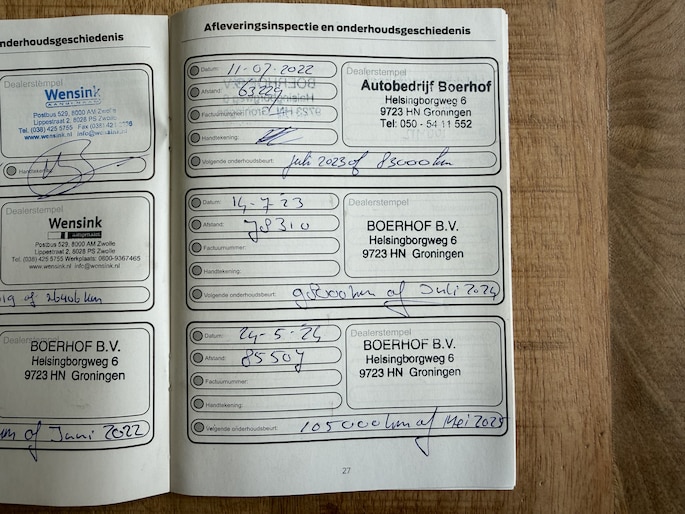 nderhoudsgeschiedenis
Dealerstempel
Wensink
Postbus 529, 8000 AM Zwolle
Lippestraat 2, 8028 PS Zwolle
Tel. (038) 425 5755 Fax (038) 421
www.wensink.nl info@wensink.nl
Handtekening:
Dealerstempel
Wensink
Postbus 529, 8000 AM Zwolle
Lippestraat 2, 8028 PS Zwolle
Tel. (038) 425 5755 Werkplaats: 0800-9367465
www.wensink.nl info@wensink.nl
19 of 26406 km
Dealerstempel
BOERHOF B.V.
Helsingborgweg 6
9723 HN Groningen
of Juni 2022
Afleveringsinspectie en onderhoudsgeschiedenis
Datum: 11-07-2022
Afstand: 63229
Factuurnummer:
Handtekening:
Volgende onderhoudsbeurt: juli 2023 of 83000 km
Dealerstempel
Autobedrijf Boerhof
Helsingborgweg 6
9723 HN Groningen
Tel: 050 - 54 11 552
Datum: 14-7-23
Afstand: 78310
Factuurnummer:
Handtekening:
Volgende onderhoudsbeurt: of Juli 2024
Dealerstempel
BOERHOF B.V.
Helsingborgweg 6
9723 HN Groningen
Datum: 24-5-24
Afstand: 85507
Factuurnummer:
Handtekening:
Volgende onderhoudsbeurt: 105000 km of Mei 2025
Dealerstempel
BOERHOF B.V.
Helsingborgweg 6
9723 HN Groningen
27